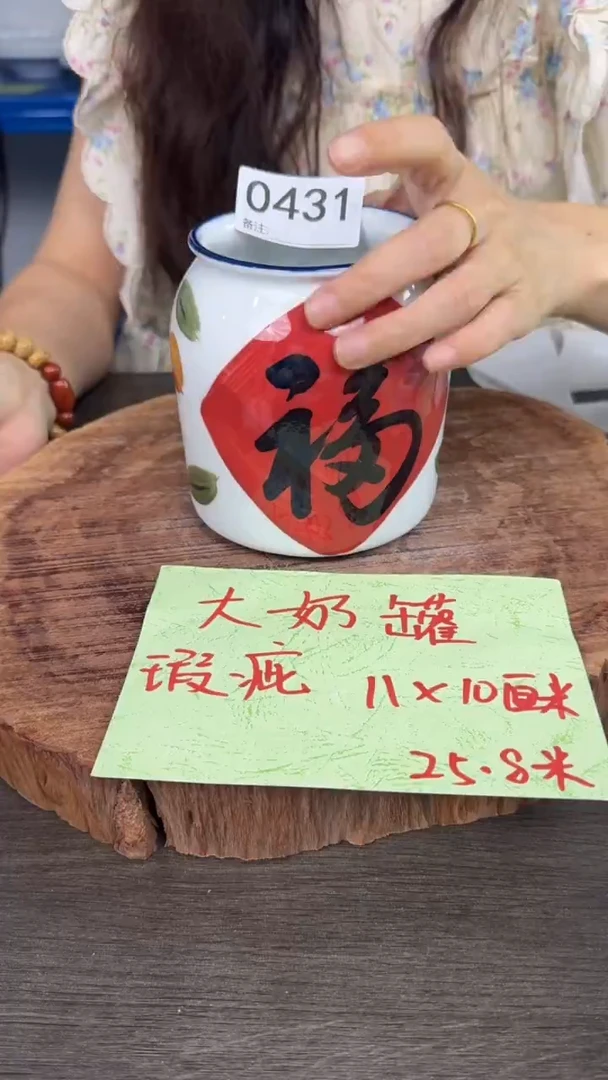 0431
备注:
福
大奶罐
瑕疵 11×10厘米
25.8米